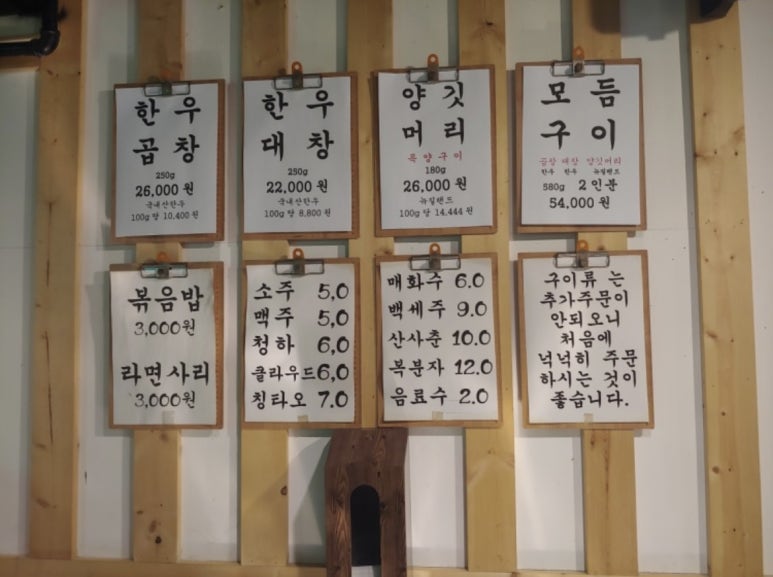 한우
곱창
250g
26,000 원
국내산한우
100g 당 10,400 원
한우
대창
250g
22,000 원
국내산한우
100g 당 8,800 원
양깃
머리
특양구이
180g
26,000 원
뉴질랜드
100g 당 14,444 원
모듬
구이
곱창 대창 양깃머리
한우 한우 뉴질랜드
580g 2인분
54,000 원
볶음밥
3,000원
라면사리
3,000원
소주 5,0
맥주 5,0
청하 6,0
클라우드 6,0
칭타오 7.0
매화수 6.0
백세주 9.0
산사춘 10.0
복분자 12.0
음료수 2.0
구이류 는
추가주문이
안되오니
처음에
넉넉히 주문
하시는 것이
좋습니다.